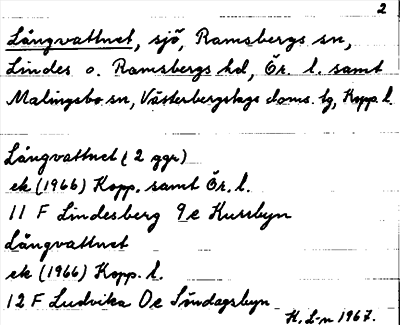 2
Långvattnet, sjö, Ramsbergs sn,
Lindes o. Ramsbergs hd, Ör. l. samt
Malingsbo sn, Västerbergslags doms. tg, Kopp. l.
Långvattnet (2 ggr)
ek (1966) Kopp. samt Ör. l.
11 F Lindesberg 9e Kursbyn
Långvattnet
ek (1966) Kopp. l.
12 F Ludvika 0e Söndagsbyn
H. L-n 1967.